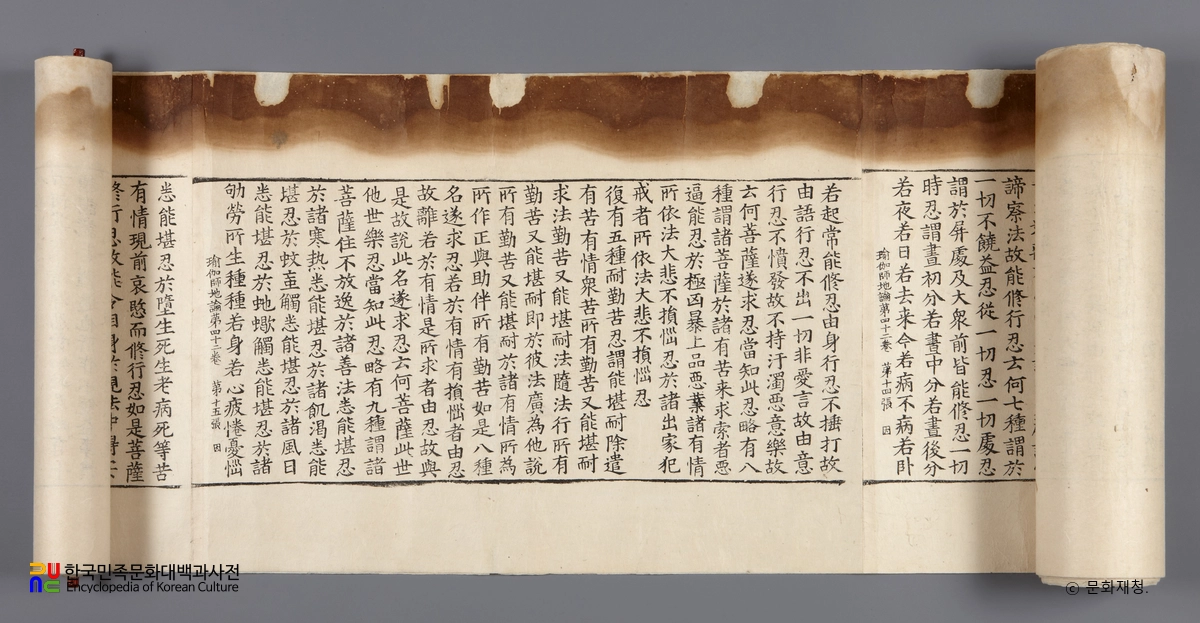 諦察法故能修行忍云何七種謂於
一切不饒益忍從一切忍一切處忍
謂於屛處及大衆前皆能修忍一切
時忍謂晝初分若晝中分若晝後分
若夜若日若去来今若病不病若卧
瑜伽師地論第四十二卷 第十四張 因
若起常能修忍由身行忍不捶打故
由語行忍不出一切非愛言故由意
行忍不憤發故不持汙濁惡意樂故
云何菩薩遂求忍當知此忍略有八
種謂諸菩薩於諸有苦来求索者惡
逼能忍於極凶暴上品惡業諸有情
所依法大悲不損惱忍於諸出家犯
戒者所依法大悲不損惱忍
復有五種耐勤苦忍謂能堪耐除遣
有苦有情衆苦所有勤苦又能堪耐
求法勤苦又能堪耐法隨法行所有
勤苦又能堪耐即於彼法廣為他說
所有勤苦又能堪耐於諸有情所為
所作正與助伴所有勤苦如是八種
名遂求忍若於有情有損惱者由忍
故離若於有情是所求者由忍故與
是故說此名遂求忍云何菩薩此世
他世樂忍當知此忍略有九種謂諸
菩薩住不放逸於諸善法悉能堪忍
於諸寒热悉能堪忍於諸飢渴悉能
堪忍於蚊䖟觸悉能堪忍於諸風日
悉能堪忍於虵蠍觸悉能堪忍於諸
劬勞所生種種若身若心疲惓憂惱
瑜伽師地論第四十二卷 第十五張 因
悉能堪忍於墮生死生老病死等苦
有情現前哀愍而修行忍如是菩薩
한국민족문화대백과사전
Encyclopedia of Korean Culture
ⓒ 문화재청.